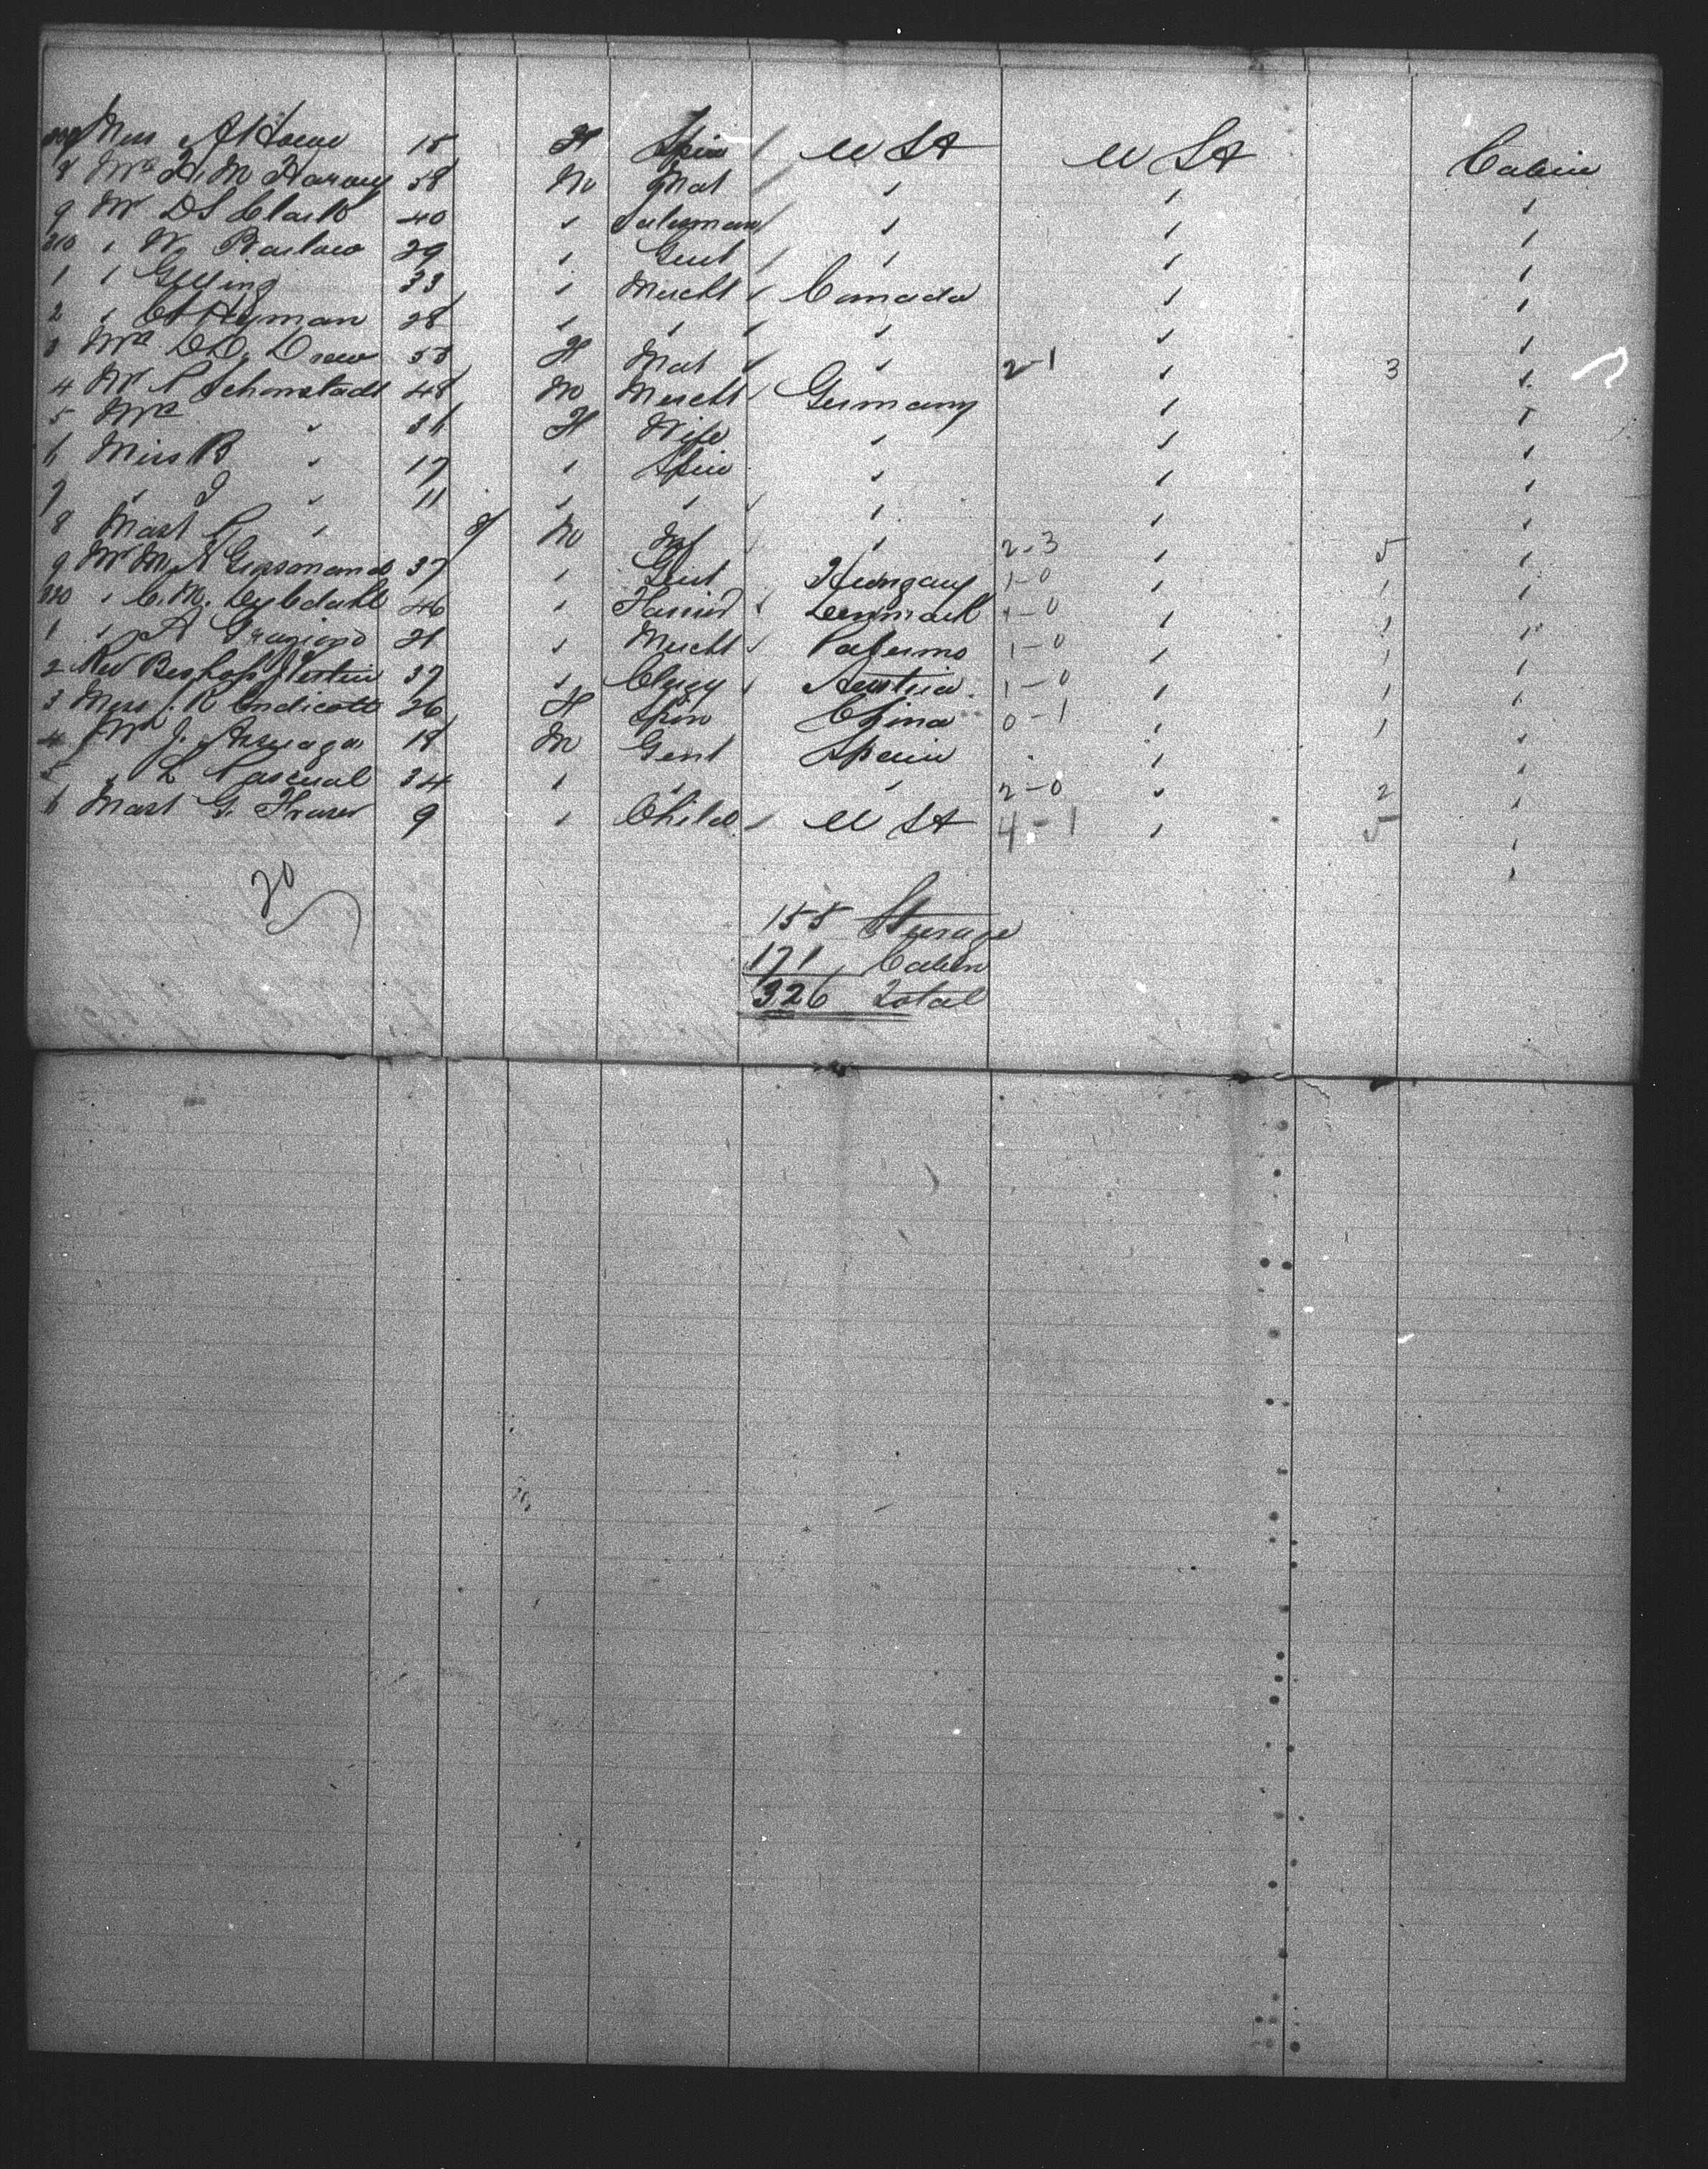 Miss A Howe 18 F Spin / U St U St Cabin
8 Mrs H. M Harvey 58 M Mat / " " "
9 Mr D S Clark 40 " Salesman / " " "
310 " W. Barlow 29 " Gent / " " "
1 " Gelling 33 " Mercht / Canada " "
2 " Hyman 28 " " " " " "
3 Mrs D D. Drew 58 F Mat / " 2-1 " 3 "
4 Mr P Schonstadt 48 M Mercht / Germany " "
5 Mrs " 36 F Wife " " "
6 Miss B " 17 " Spin " " "
7 " J " 11 " " / " " "
8 Mast P. " M " 2-3 " 5 "
9 Mr M. A 37 " Gent Hungary 1-0 " 1 "
320 " C. M. 46 " / Denmark 1-0 " 1 "
1 " A 21 " Mercht / Palermo 1-0 " 1 "
2 Rev Bishop 37 " Clergy / Austria 1-0 " 1 "
3 Miss R Endicott 26 F Spin China 0-1 " 1 "
4 Mr J. Arruaga 18 M Gent Spain " "
5 " L Pascual 34 " " " 2-0 " 2 "
6 Mast G. Fraser 9 " Child / U St 4-1 " 5 "
20
155 Steerage
171 Cabin
326 Total